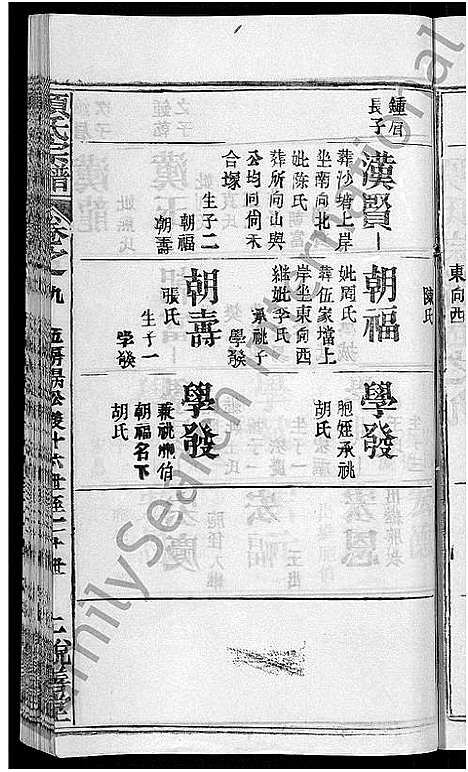 東向西
陳氏
鍾眉
長子
漢賢
葬沙塘上岸
坐南向北
妣陳氏
葬所向山與
公均同向未
合塚
生子二
朝福
朝壽
朝福
妣周氏
葬伍家壋上
岸坐東向西
繼妣李氏
承祧子
學發
朝壽
張氏
生子一
學發
學發
胞姪承祧
胡氏
學發
兼祧胞伯
朝福名下
胡氏
氏宗譜
卷之九
至二十世
敦善堂
FamilySearch International